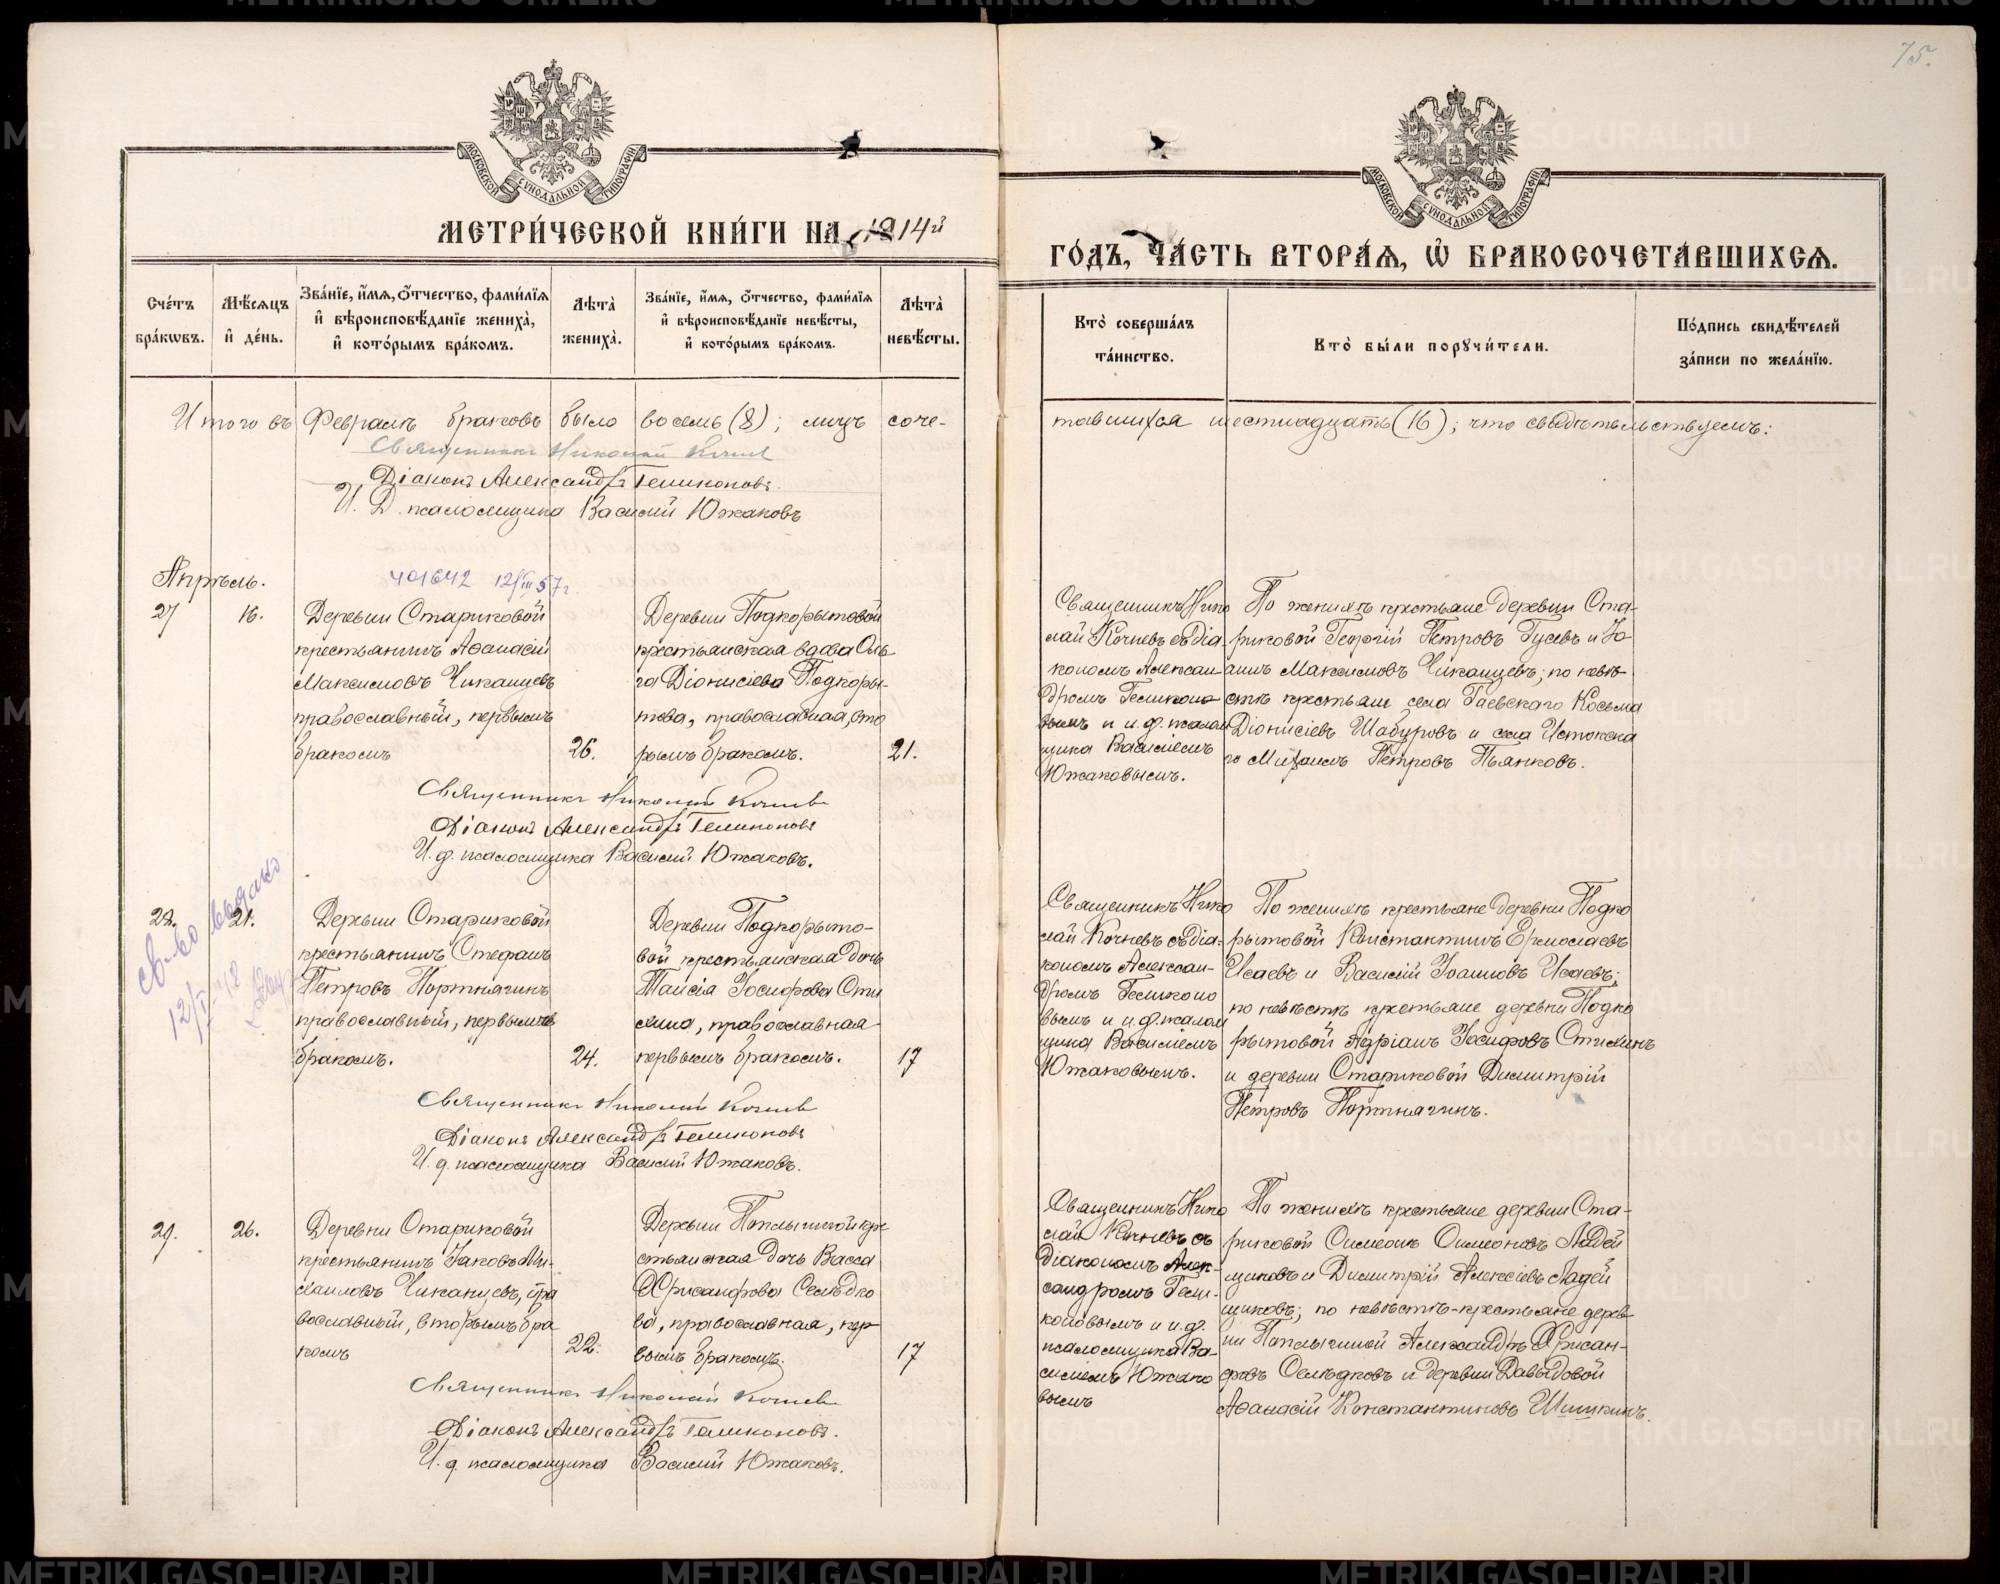 75.
МОСКОВСКОЙ СѴНОДАЛЬНОЙ ТИПОГРАФІИ
МЕТРИ́ЧЕСКОЙ КНИ́ГИ НА 1914й
МОСКОВСКОЙ СѴНОДАЛЬНОЙ ТИПОГРАФІИ
ГО́ДЪ, ЧА́СТЬ ВТОРА́Ѧ, Ѡ БРАКОСОЧЕТА́ВШИХСѦ.
Сче́тъ бра́кѡвъ.
Мѣ́сяцъ и҆ де́нь.
Зва́нїе, и҆́мѧ, о҆́тчество, фами́лїѧ и҆ вѣроисповѣ́данїе жениха̀, и҆ кото́рымъ бра́комъ.
Лѣта̀ жениха̀.
Зва́нїе, и҆́мѧ, о҆́тчество, фами́лїѧ и҆ вѣроисповѣ́данїе невѣ́сты, и҆ кото́рымъ бра́комъ.
Лѣта̀ невѣ́сты.
Кто̀ соверша́лъ та́инство.
Кто̀ бы́ли порꙋчи́тели.
По́дпись свидѣ́телей за́писи по жела́нїю.
Итого въ Февралѣ браковъ было восемь (8); лицъ соче-
тавшихся шестнадцать (16); что свидѣтельствуемъ:
Священникъ Николай Кочнев
Діаконъ Александръ Геликоновъ
И. Д. псаломщика Василій Южаковъ
Апрѣль.
401642 12/III 57 г.
27
16.
Деревни Стариковой
крестьянинъ Аѳанасій
Максимовъ Чиканцевъ
православный, первымъ
бракомъ
26.
Деревни Подкорытовой
крестьянская вдова Оль
га Діонисіева Подкоры-
това, православная, вто
рымъ бракомъ.
21.
Священникъ Нико
лай Кочневъ съ діа-
кономъ Алексан-
дромъ Геликоно
вымъ и и. ф. псалом
щика Василіемъ
Южаковымъ.
По женихѣ крестьяне деревни Ста-
риковой Георгій Петровъ Гусевъ и Іо
аннъ Максимовъ Чиканцевъ; по невѣ-
стѣ крестьяне села Гаевскаго Косьма
Діонисіевъ Шабуровъ и села Истокска
го Михаилъ Петровъ Пьянковъ.
Священникъ Николай Кочнев
Діаконъ Александръ Геликоновъ
И. ф. псаломщика Василій Южаковъ.
св-во выдано
12/I-42
28.
21.
Деревни Стариковой
крестьянинъ Стефанъ
Петровъ Портнягинъ
православный, первымъ
бракомъ.
24.
Деревни Подкорыто-
вой крестьянская дочь
Таисія Іосифова Сти
хина, православная
первымъ бракомъ.
17
Священникъ Нико
лай Кочневъ съ діа-
кономъ Алексан-
дромъ Геликоно
вымъ и и. ф. псалом
щика Василіемъ
Южаковымъ.
По женихѣ крестьяне деревни Подко
рытовой Константинъ Ермолаевъ
Исаевъ и Василій Іоанновъ Исаевъ;
по невѣстѣ крестьяне деревни Подко
рытовой Адріанъ Іосифовъ Стихинъ
и деревни Стариковой Димитрій
Петровъ Портнягинъ.
Священникъ Николай Кочнев
Діаконъ Александръ Геликоновъ
И. д. псаломщика Василій Южаковъ.
29.
26.
Деревни Стариковой
крестьянинъ Іаковъ Ми-
хаиловъ Чиканцевъ, пра
вославный, вторымъ бра
комъ
22.
Деревни Потлычиной кре
стьянская дочь Васса
Хрисанфова Селѣдко
ва, православная, пер
вымъ бракомъ.
17
Священникъ Нико
лай Кочневъ съ
діакономъ Алек-
сандромъ Гели-
коновымъ и и. ф.
псаломщика Ва-
силіемъ Южако
вымъ
По женихѣ крестьяне деревни Ста-
риковой Симеонъ Симеоновъ Ладей
щиковъ и Димитрій Алексіевъ Ладей
щиковъ; по невѣстѣ-крестьяне дерев-
ни Потлычиной Александръ Хрисан-
фовъ Селѣдковъ и деревни Давыдовой
Аѳанасій Константиновъ Шишкинъ.
Священникъ Николай Кочнев
Діаконъ Александръ Геликоновъ.
И. д. псаломщика Василій Южаковъ.
METRIKI.GASO-URAL.RU